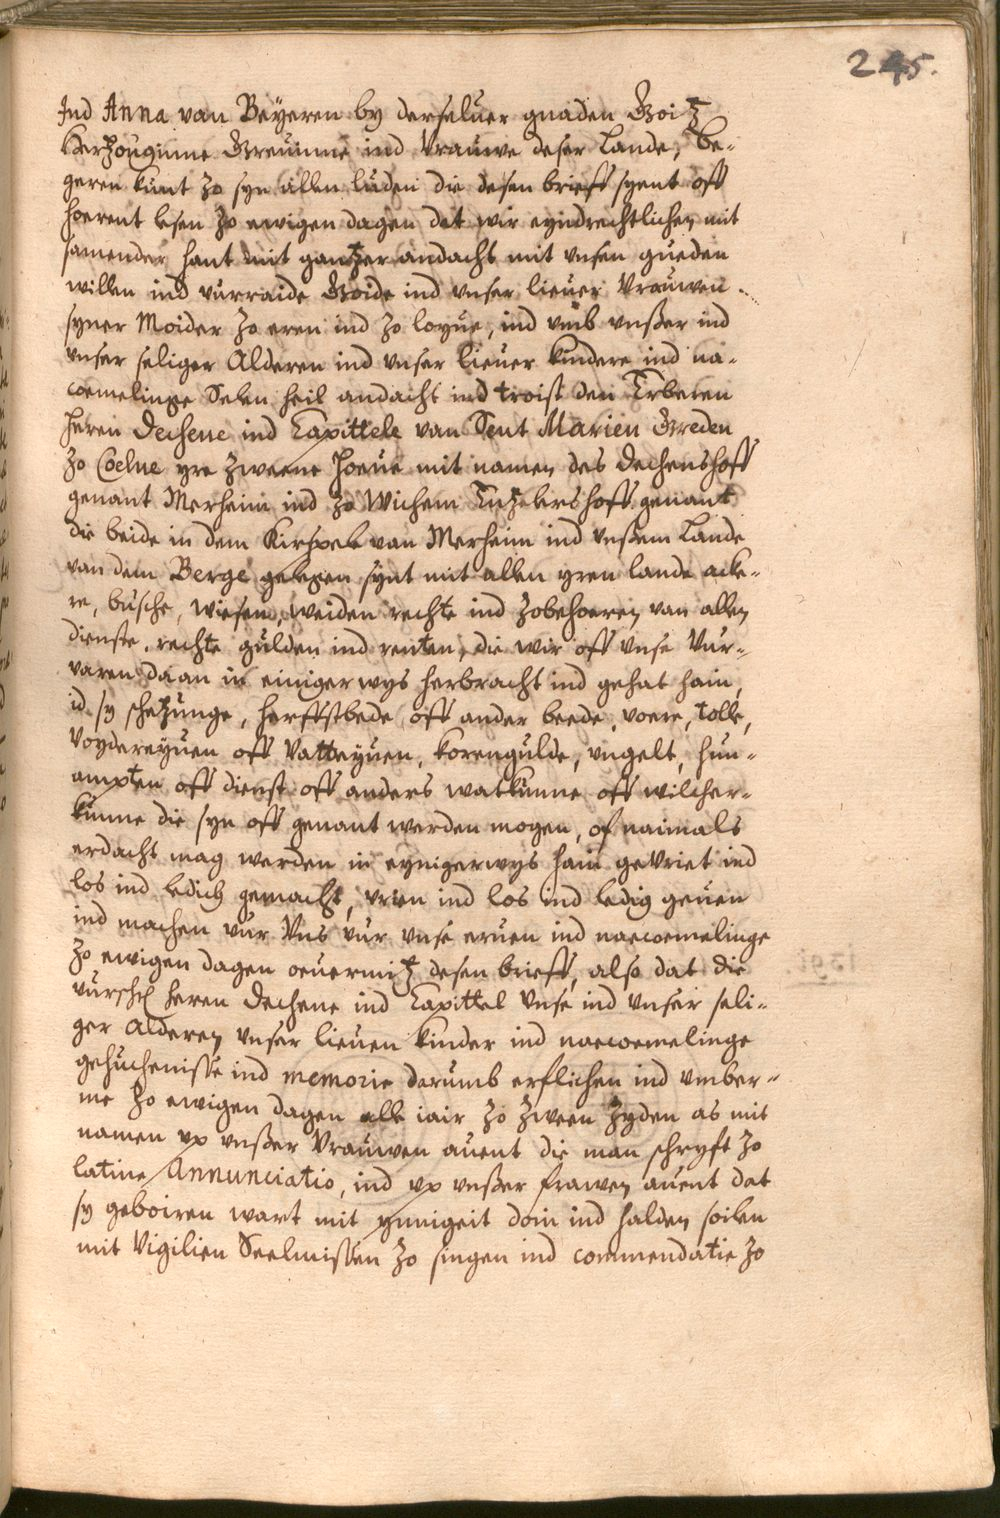 245.
Ind Anna van Beÿeren by derseluer gnaden Goitz
Hertzouginne Greuinne ind Vrauwe deser Lande, be-
geren kunt zo syn allen luden die desen brieff syent off
hoerent lesen zo ewigen dagen dat wir eyndrechtlichen mit
samender hant mit gantzer andacht mit vnsen gueden
willen ind vurraide Goide ind vnser lieuer Vrauwen
syner Moider zo eren ind zo loyue, ind vmb vnßer ind
vnser seliger Alderen ind vnser lieuer kindere ind na-
coemelinge Selen heil andacht ind troist den Erberen
heren Dechene ind Capittele van Sent Marien Greden
zo Coelne yre zweene hoeue mit namen des Dechenshoff
genant Merheim ind zo Wichem Tutzelershoff genant
die beide in dem Kirspel van Merheim ind vnßem Lande
van dem Berge gelegen synt mit allen yren lande acke-
re, busche, wiesen, weiden rechte ind zobehoeren van allen
dienste, rechte gulden ind renten, die wir off vnse Vur-
varen daan in einigerwys herbracht ind gehat hain,
id sy schetzunge, herffstbede off ander beede, voere, tolle,
Voydereyuen off Vatteyuen, korengulde, vngelt, hun-
ampten off dienst off anders watkunne off wilcher-
kunne die syn off genant werden mogen, of naimals
erdacht mag werden in eynigerwys hain gevriet ind
los ind ledich gemacht, vrien ind los ind ledig geuen
ind machen vur Vns vur vnse eruen ind naecoemelinge
zo ewigen dagen oeuermitz desen brieff, also dat die
vurschl heren Dechene ind Capittel vnse ind vnser seli-
ger Alderen vnser lieuen kinder ind naecoemelinge
gehuchenisse ind memorie darumb erflichen ind vmber-
me zo ewigen dagen alle iair zo zween zyden as mit
namen vp vnßer Vrauwen auent die man schryft zo
latine Annunciatio, ind vp vnßer frawen auent dat
sy geboiren wart mit ynnigeit doin ind halden soilen
mit Vigilien Seelmissen zo singen ind commendatie zo